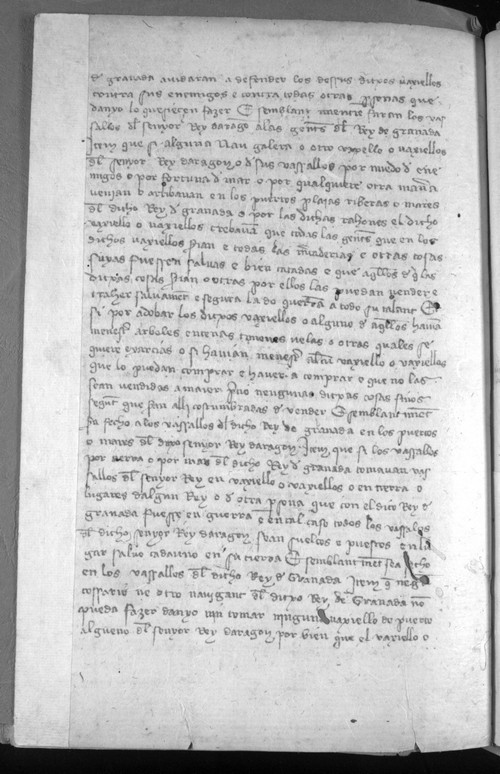 de granada aiudaran a defender los dessus dichos vaxielles
contra sus enemigos e contra todas otras personas que
danyo lo quisiessen fazer E semblant mente faran los vas
sallos del senyor Rey darago a las gentes del Rey de granada
Item que si alguna Nau galera o otro vaxello o vaxiellos
del senyor Rey daragon o de sus vassallos por miedo de ene
migos o por fortuna de mar o por qualquiere otra manera
venian o arribavan en los puertos plaias riberas o mares
del dicho Rey de granada o por las dichas rahones el dicho
vaxiello o vaxiellos que todas las gentes que en los
dichos vaxiellos sean e todas las mercaderias e otras cosas
suyas fuessen salvas e bien catadas e que aquellos de las
dichas cosas sean o otras por ellos las puedan vender e
traher salvament e segura a todo su talant E
si por adobar los dichos vaxiellos o alguno de aquellos havia
menester arboles entenas timones velas o otras quales se
quiere exarcias o si havian menester algun vaxiello o vaxiellos
que lo puedan comprar e haver a comprar e que no las
sean vendidas a maior precio nenguna dichas cosas sinos
segunt que son alli costumbradas de vender E semblant ment
sea fecho a los vassallos del dicho Rey de granada en los puertos
o mares del dicho senyor Rey daragon Item que si los vassallos
por tierra o por mar del dicho Rey de granada tomavan vas
sallos del senyor Rey en vaxiello o vaxiellos o en tierra o
lugares dalgun Rey o de otra persona que con el dicho Rey de
granada fuesse en guerra e en tal caso todos los vassallos
del dicho senyor Rey daragon sean sueltos e puestos en lu
gar salvo cadauno en su tierra E semblant ment sea fecho
en los vassallos del dicho Rey de Granada Item que negun
cossario ne otro navigant del dicho Rey de Granada no
pueda fazer danyo nin tomar ningun vaxiello de puerto
alguno del senyor Rey daragon por bien que el vaxiello o